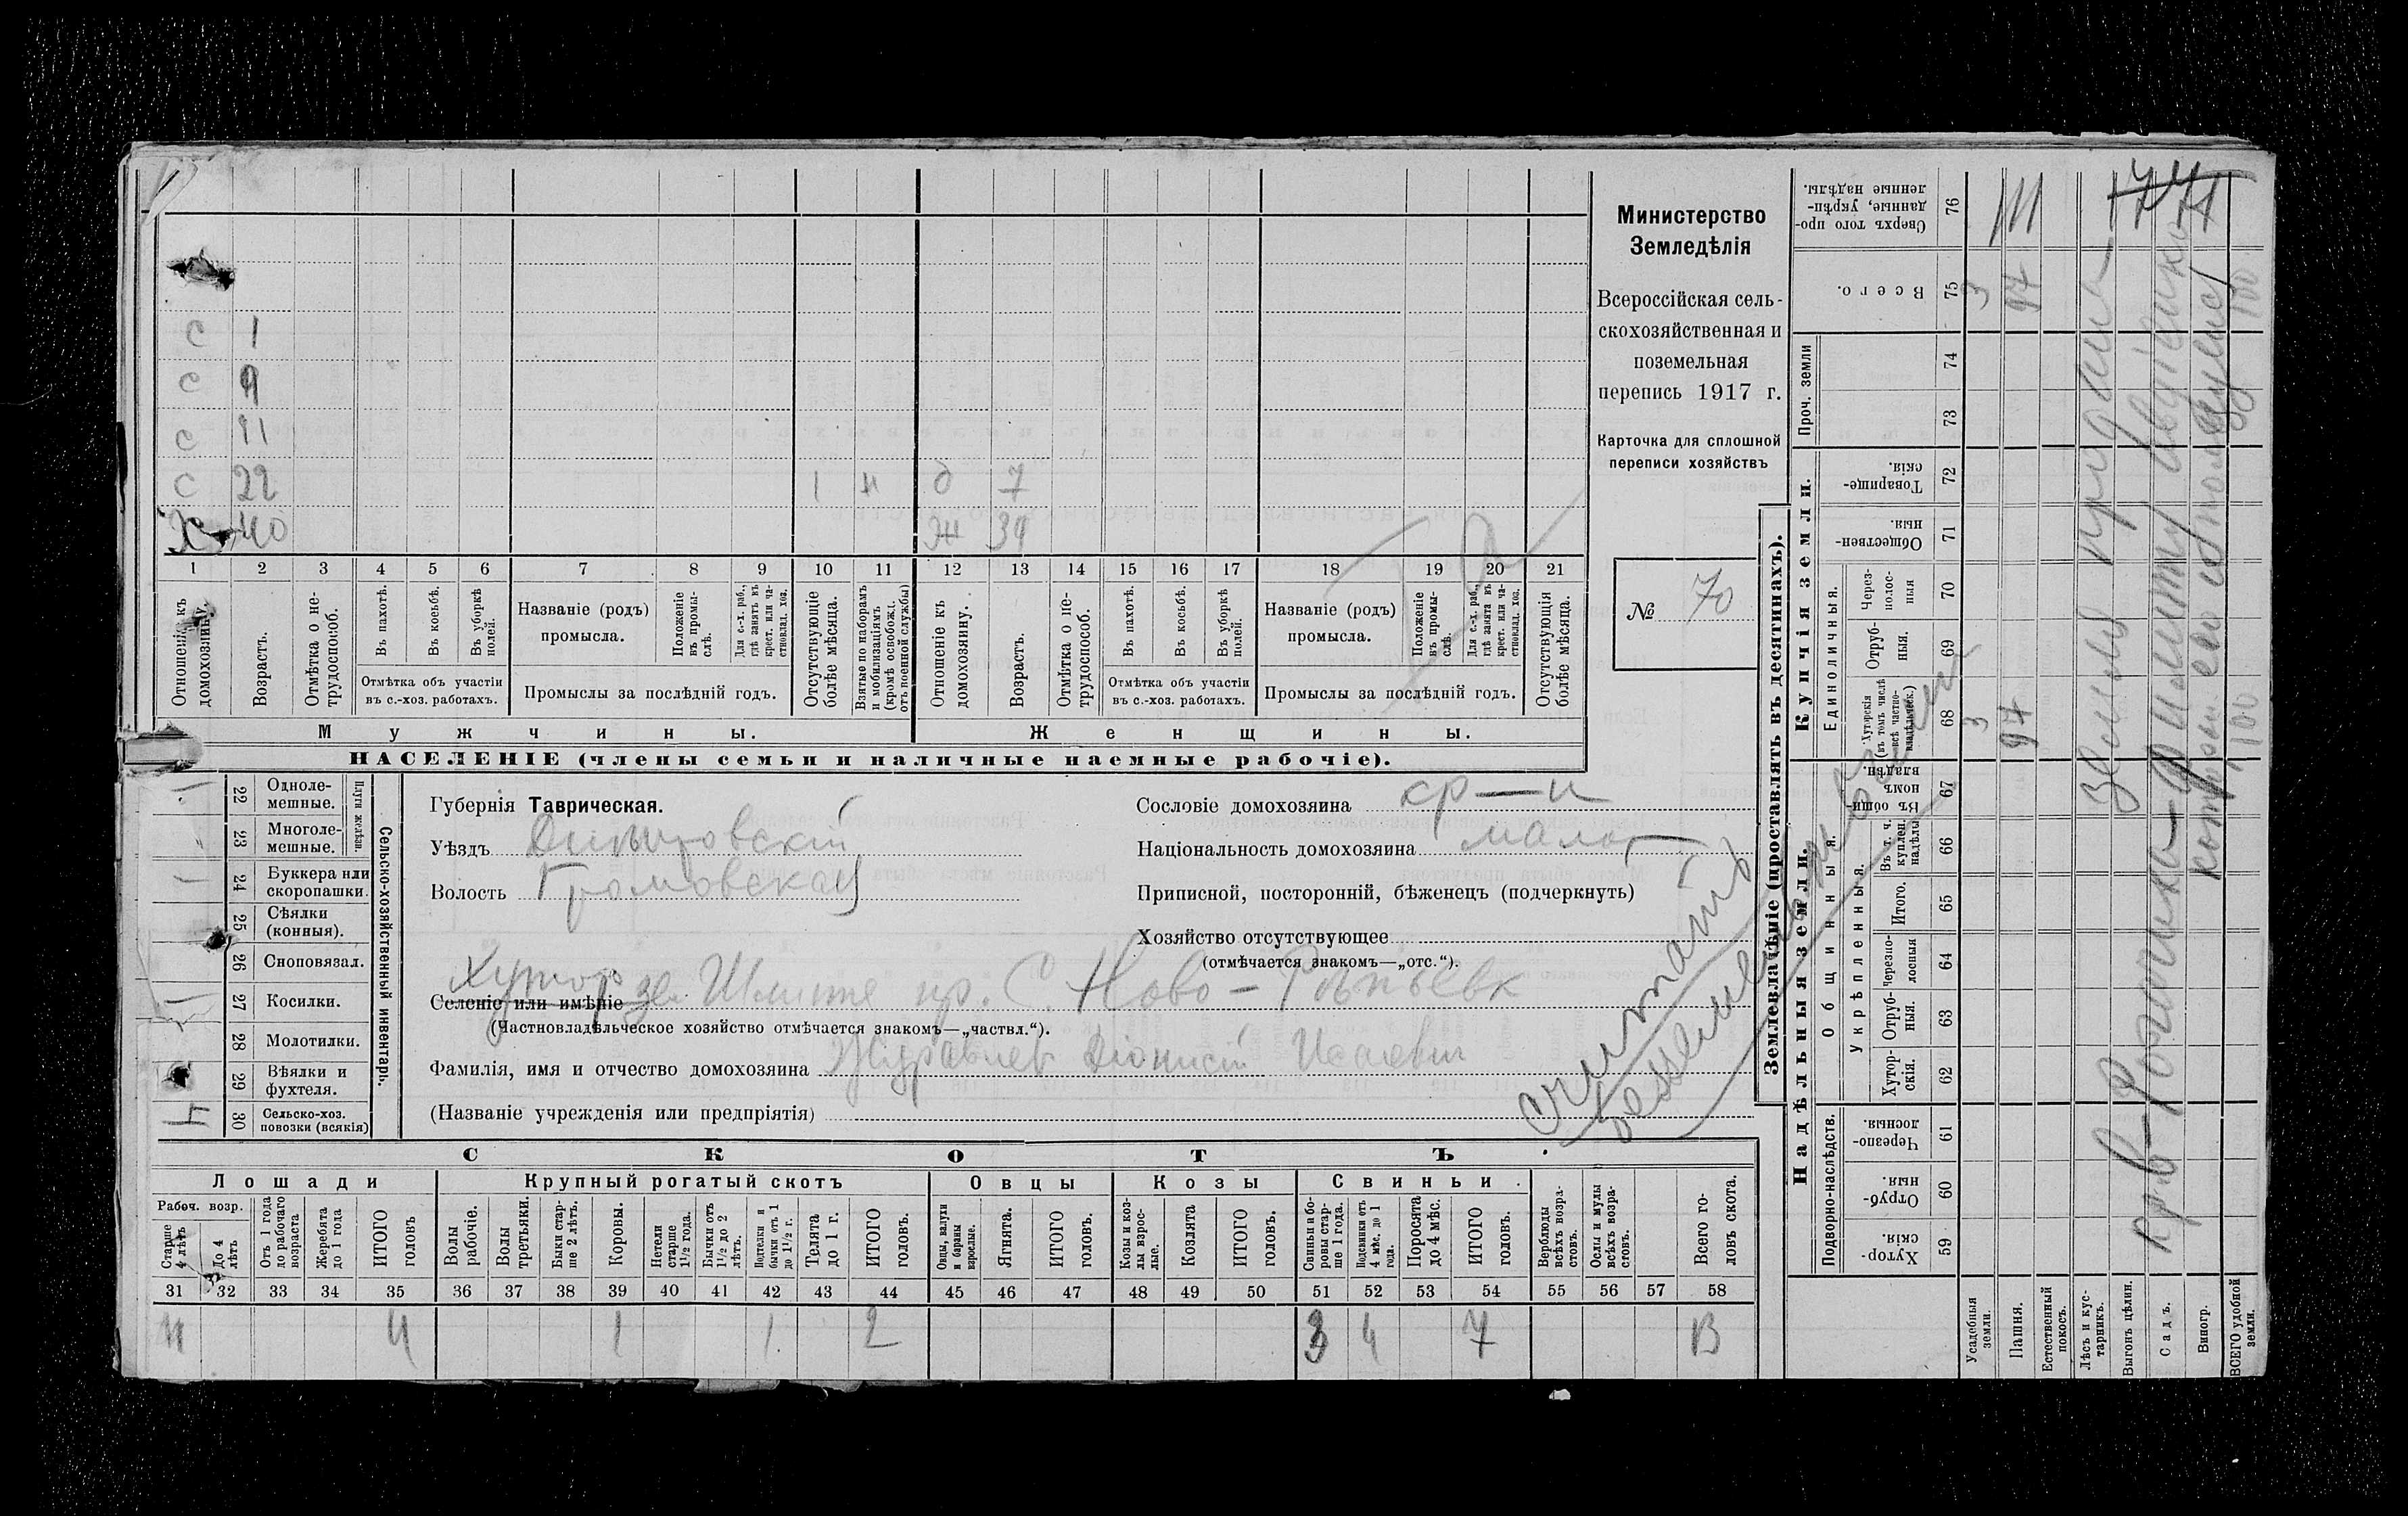 С 1
С 9
С 11
С 22 1 н д 7
Х 40 Ж 39
1 2 3 4 5 6 7 8 9 10 11 12 13 14 15 16 17 18 19 20 21
Отношеніе къ домохозяину.
Возрастъ.
Отмѣтка о не-трудоспособ.
Въ пахотѣ.
Въ косьбѣ.
Въ уборкѣ полей.
Отмѣтка объ участіи
въ с.-хоз. работахъ.
Названіе (родъ)
промысла.
Положеніе въ промы-слѣ.
Для с.-х. раб., гдѣ занятъ въ крест. или ча-стновлад. хоз.
Промыслы за послѣдній годъ.
Отсутствующіе болѣе мѣсяца.
Взятые по наборамъ и мобилизаціямъ (кромѣ освобожд. отъ военной службы)
Отношеніе къ домохозяину.
Возрастъ.
Отмѣтка о не-трудоспособ.
Въ пахотѣ.
Въ косьбѣ.
Въ уборкѣ полей.
Отмѣтка объ участіи
въ с.-хоз. работахъ.
Названіе (родъ)
промысла.
Положеніе въ промы-слѣ.
Для с.-х. раб., гдѣ занята въ крест. или ча-стновлад. хоз.
Промыслы за послѣдній годъ.
Отсутствующія болѣе мѣсяца.
Мужчины. Женщины.
НАСЕЛЕНІЕ (члены семьи и наличные наемные рабочіе).
Министерство
Земледѣлія
Всероссійская сель-
скохозяйственная и
поземельная
перепись 1917 г.
Карточка для сплошной
переписи хозяйствъ
№ 70
22 Одноле-мешные.
23 Многоле-мешные.
Плуги желѣзн.
24 Буккера или скоропашки.
25 Сѣялки (конныя).
26 Сноповязал.
27 Косилки.
28 Молотилки.
29 Вѣялки и фухтеля.
30 Сельско-хоз. повозки (всякія)
Сельско-хозяйственный инвентарь.
Губернія Таврическая.
Уѣздъ Днѣпровскій
Волость Громовская
Хуторъ
Селеніе или имѣніе
пр. С. Ново-
(Частновладѣльческое хозяйство отмѣчается знакомъ—„частвл.“).
Фамилія, имя и отчество домохозяина Журавлев Діонисій Исаевич
(Названіе учрежденія или предпріятія)
Сословіе домохозяина кр—н
Національность домохозяина мало
Приписной, посторонній, бѣженецъ (подчеркнуть)
Хозяйство отсутствующее
(отмѣчается знакомъ—„отс.“).
считать
безземельн
СКОТЪ.
Лошади Крупный рогатый скотъ Овцы Козы Свиньи.
Рабоч. возр.
Старше 4 лѣтъ
До 4 лѣтъ
Отъ 1 года до рабочаго возраста
Жеребята до 1 года
ИТОГО головъ
Волы рабочіе.
Волы третьяки.
Быки стар-ше 2 лѣтъ.
Коровы.
Нетели старше 1½ года.
Бычки отъ 1½ до 2 лѣтъ.
Подтелки и бычки отъ 1 до 1½ г.
Телята до 1 г.
ИТОГО головъ.
Овцы, валухи и бараны взрослые.
Ягнята.
ИТОГО головъ.
Козы и коз-лы взрос-лые.
Козлята
ИТОГО головъ.
Свиньи и бо-ровы стар-ше 1 года.
Подсвинки отъ 4 мѣс. до 1 года.
Поросята до 4 мѣс.
ИТОГО головъ.
Верблюды всѣхъ возра-стовъ.
Ослы и мулы всѣхъ возра-стовъ.
Всего го-ловъ скота.
31 32 33 34 35 36 37 38 39 40 41 42 43 44 45 46 47 48 49 50 51 52 53 54 55 56 57 58
4 4 1 1 2 3 4 7 13
Землевладѣніе (проставлять въ десятинахъ).
Надѣльныя земли. Купчія земли. Проч. земли
Подворно-наслѣдств.
Общинныя.
Укрѣпленныя.
Единоличныя.
Хутор-скія. 59
Отруб-ныя. 60
Черезпо-лосныя. 61
Хутор-скія. 62
Отруб-ныя. 63
Черезпо-лосныя 64
Итого. 65
Въ т. ч. куплен. надѣлы 66
Въ общин-номъ владѣн. 67
Хуторскія (въ томъ числѣ всѣ частно-владѣльческ.) 68
Отруб-ныя. 69
Через-полос-ныя 70
Обществен-ныя. 71
Товарище-скія. 72
73
74
Всего. 75
Сверхъ того про-данные, укрѣп-ленные надѣлы. 76
Усадебныя земли. 3 3
Пашня. 97 97
Естественный покосъ.
Лѣсъ и кус-тарникъ.
Выгонъ цѣлин.
Садъ.
Виногр.
ВСЕГО удобной земли. 100 100